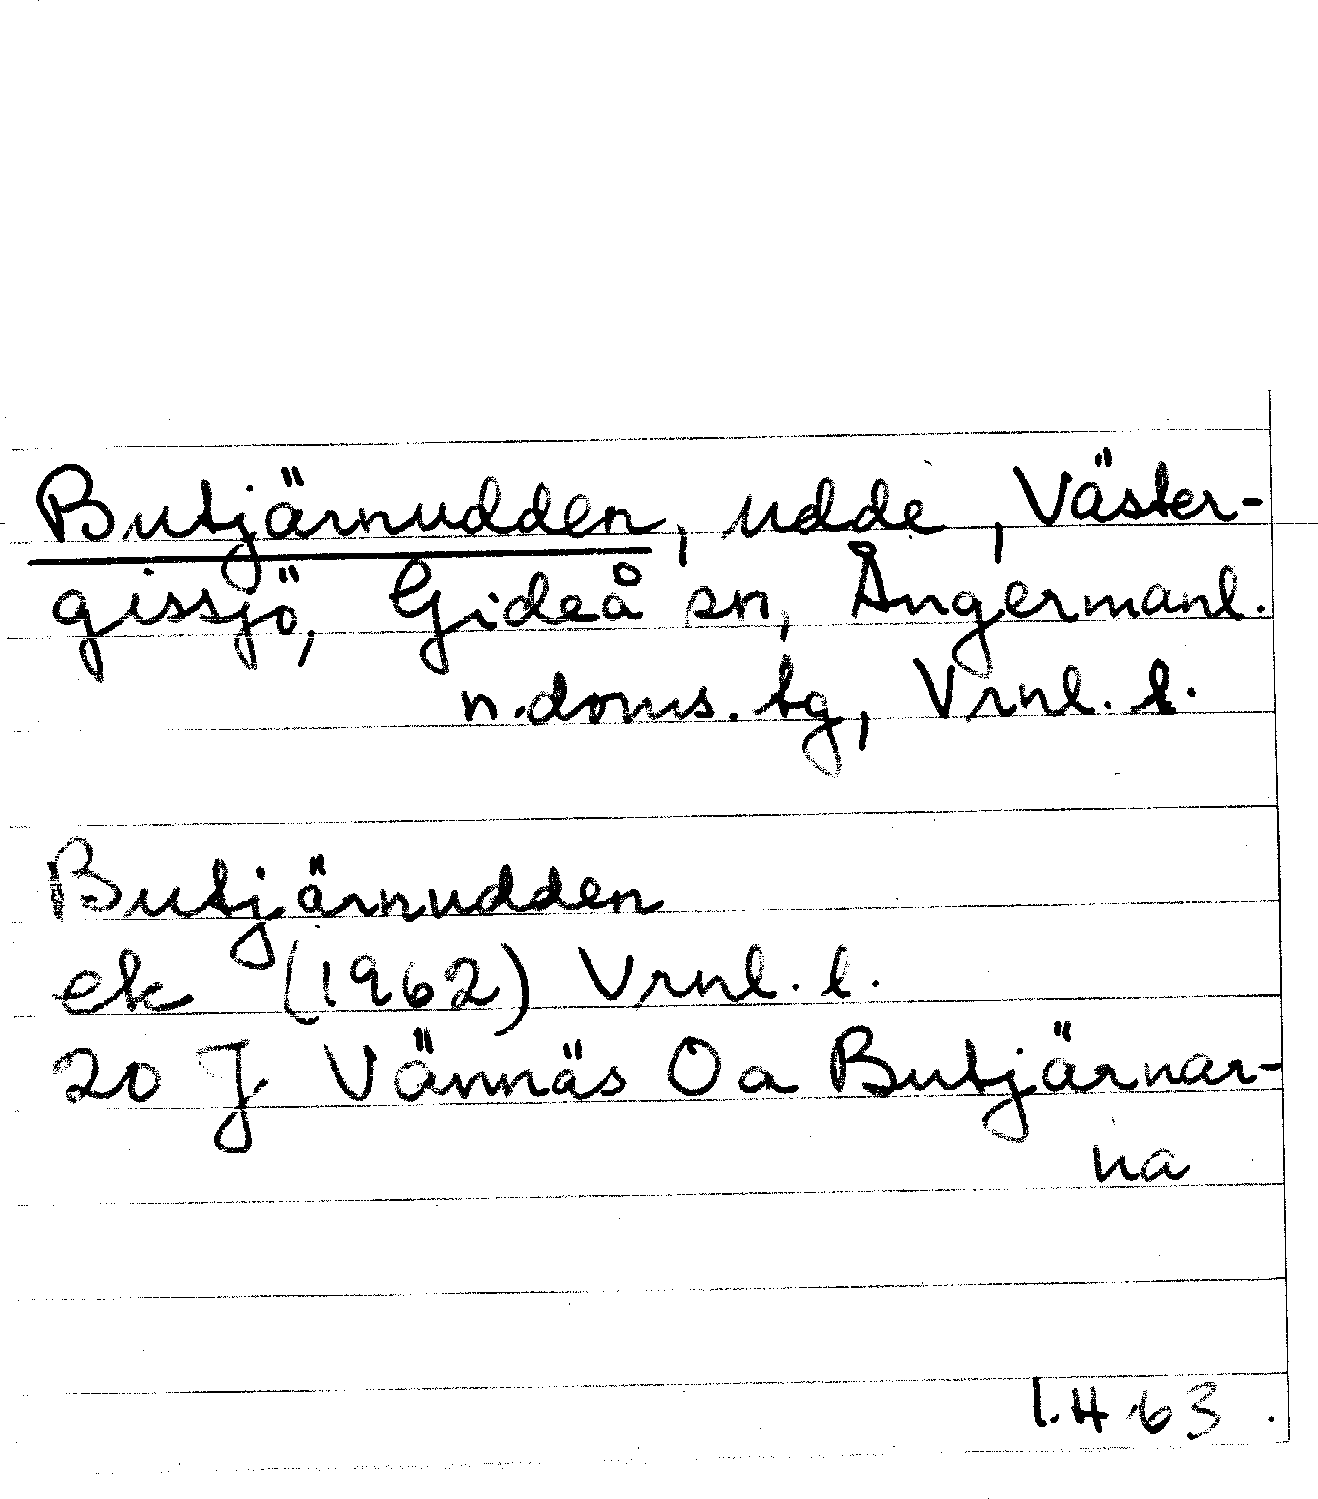 Butjärnudden, udde, Väster-
gissjö, Gideå sn, Ångermanl.
n.doms.tg, Vrnl. l.
Butjärnudden
ek (1962) Vrnl. l.
20 J Vännäs Oa Butjärnar-
na
1.4.63.